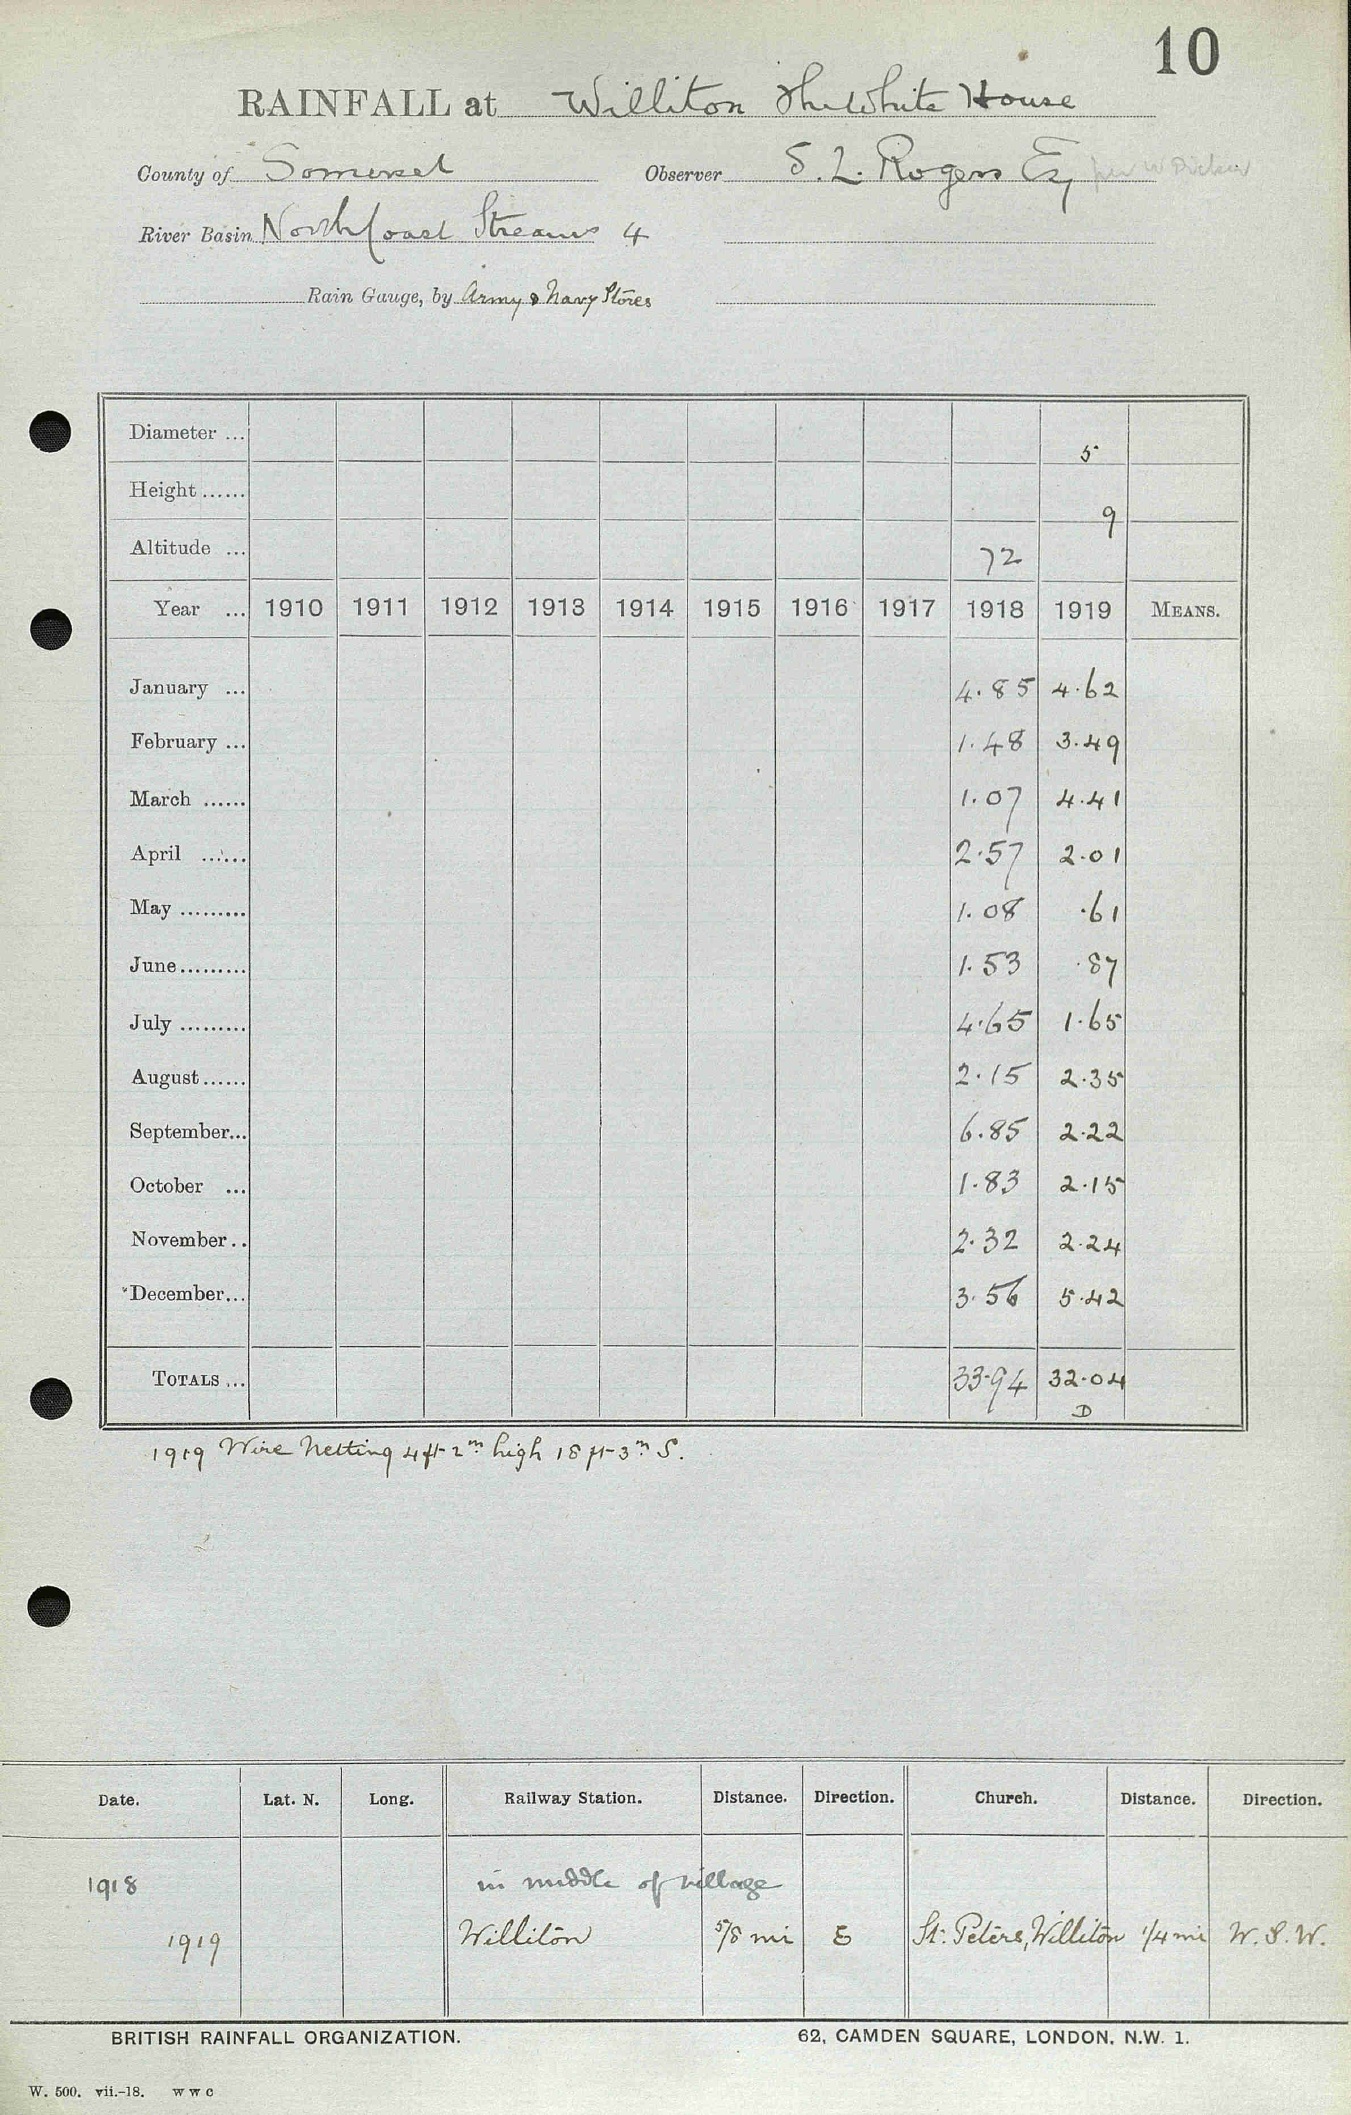 10
RAINFALL at Williton The White House
County of Somerset Observer S. L. Rogers Esq
River Basin North Coast Streams 4
Rain Gauge, by Army & Navy Stores
Diameter ... 5
Height ...... 9
Altitude ... 72
Year ... 1910 1911 1912 1913 1914 1915 1916 1917 1918 1919 MEANS.
January ... 4.85 4.62
February ... 1.48 3.49
March ...... 1.07 4.41
April ...... 2.57 2.01
May ......... 1.08 .61
June ......... 1.53 .87
July ......... 4.65 1.65
August ...... 2.15 2.35
September... 6.85 2.22
October ... 1.83 2.15
November.. 2.32 2.24
December... 3.56 5.42
TOTALS ... 33.94 32.04
D
1919 Wire Netting 4ft 2in high 18ft 3in S.
Date. Lat. N. Long. Railway Station. Distance. Direction. Church. Distance. Direction.
1918 in middle of village
1919 Williton 5/8 mi E St. Peters, Williton 1/4 mi W.S.W.
BRITISH RAINFALL ORGANIZATION. 62, CAMDEN SQUARE, LONDON, N.W. 1.
W. 500. vii.-18. W W C